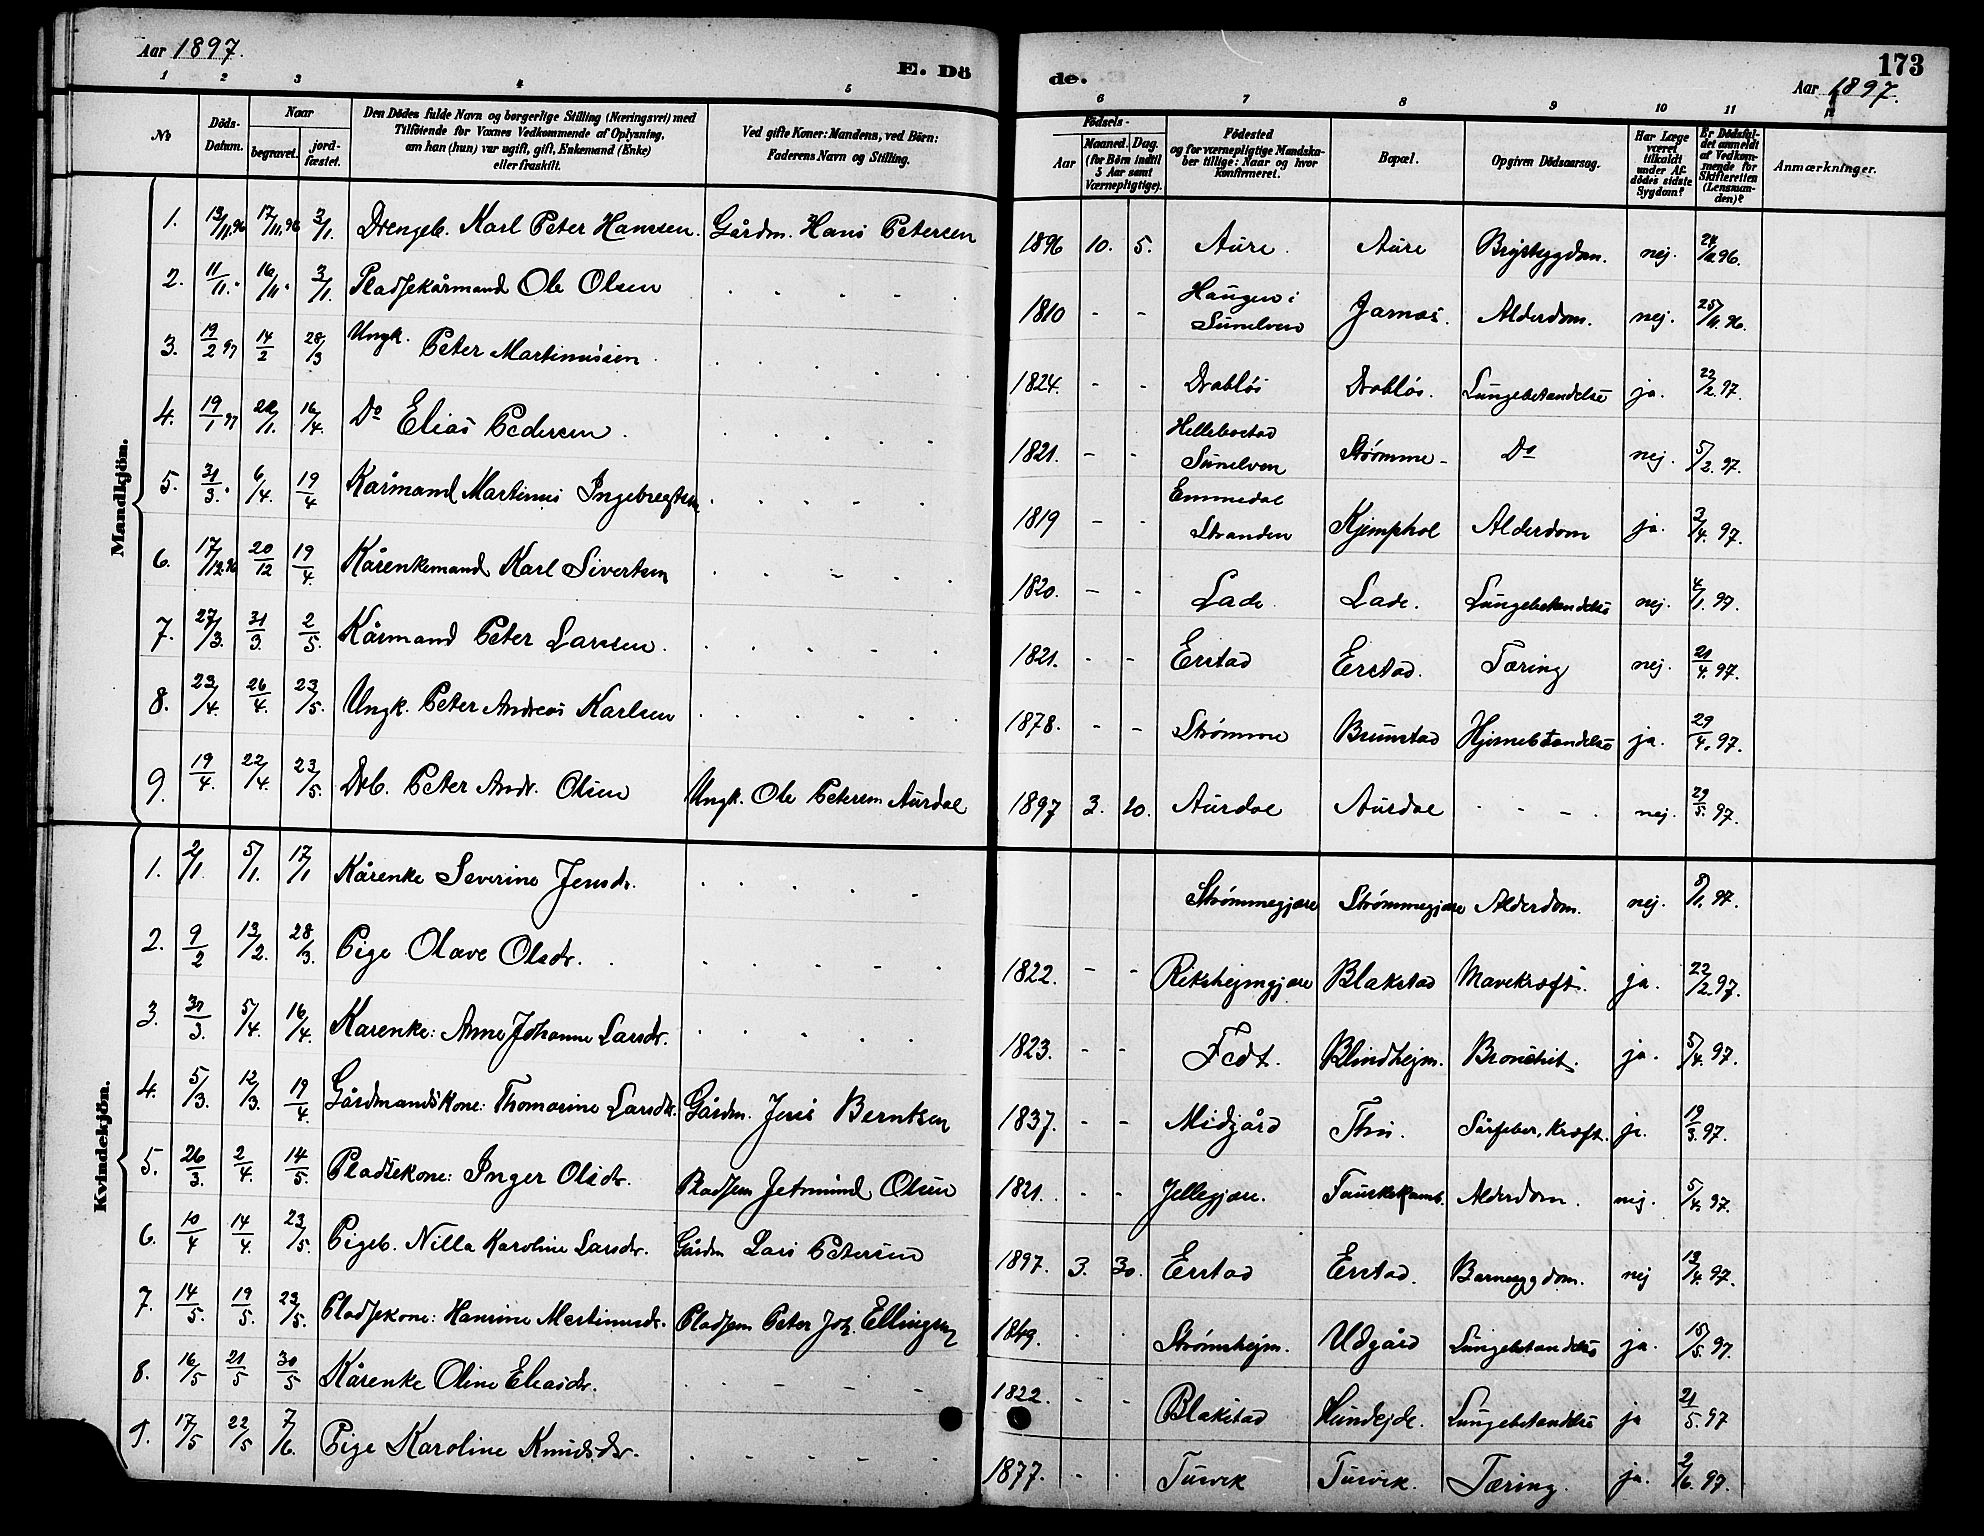 Aar 1897.
E. Dö
de.
173
Aar 1897.
1 2 3 4 5 6 7 8 9 10 11 12
No
Döds-Datum.
Naar
begravet.
jord-fæstet.
Den Dödes fulde Navn og borgerlige Stilling (Næringsvei) med
Tilföiende for Voxnes Vedkommende af Oplysning,
om han (hun) var ugift, gift, Enkemand (Enke)
eller fraskilt.
Ved gifte Koner: Mandens, ved Börn:
Faderens Navn og Stilling.
Födsels-
Aar
Maaned. Dag.
(for Börn indtil
5 Aar samt
Værnepligtige).
Födested
og for værnepligtige Mandska-
ber tillige: Naar og hvor
Konfirmeret.
Bopæl.
Opgiven Dödsaarsag.
Har Læge
været
tilkaldt
under Af-
dödes sidste
Sygdom?
Er Dödsfal-
det anmeldt
af Vedkom-
mende for
Skifteretten
(Lensman-
den)?
Anmærkninger.
Mandkjön.
1. 13/11.96 17/11.96 3/1. Drengeb. Karl Peter Hansen. Gårdm. Hans Petersen 1896 10. 5. Aure. Aure Brystsygdom. nej. 96.
2. 11/11. 16/11 3/1. Pladsekårmand Ole Olsen 1810 - - Haugen i Sunelven Jarnes. Alderdom. nej. 25/11.96.
3. 19/2 97 14/2 28/3 Ungk. Peter Martinussen 1824. - - Drabløs Drabløs. Lungebetændelse ja. 22/2.97.
4. 19/1 97 /1. 16/4. Do Elias Pedersen. 1821. - - Hellebostad Sunelven Strømme - Do nej. 5/2.97.
5. 31/3. 6/4. 19/4 Kårmand Martinus Ingebregtsen 1819 - - Emmedal Stranden Kjemphol Alderdom ja. 3/4.97.
6. 17/12.96 20/12 19/4. Kårenkemand Karl Sivertsen 1820. - - Lade. Lade. Lungebetændelse nej. 4/1.97.
7. 27/3. 31/3. 2/5. Kårmand Peter Larsen. 1821. - - Erstad Erstad. Tæring nej. 21/4.97.
8. 23/4. 26/4. 23/5. Ungk. Peter Andreas Karlsen 1878. - - Strømme Brunstad Hjernebetændelse ja. 29/4.97.
9. 19/4. 22/4. 23/5. Drb. Peter Andr. Olsen Ungk. Ole Petersen Aurdal 1897 3. 20. Aurdal Aurdal - - - nej. 29/5.97.
Kvindekjön.
1. 2/1. 5/1. 17/1 Kårenke Severine Jensdr. Strømmegjære Strømmegjære Alderdom. nej. 8/1.97.
2. 9/2 13/2. 28/3. Pige Olave Olsdr. 1822. - - Rekshejmgjære Blakstad Mavekræft. ja. 22/2.97.
3. 31/3. 5/4. 16/4. Karenke: Anne Johanne Larsdr. 1823. - - Fedt. Blindhejm. Bronchit. ja. 5/4.97.
4. 5/3. 12/3. 19/4. Gårdmandskone: Thomasine Larsdr. Gårdm. Jens Berntsen 1837. - - Midgård Thu. Sårfeber, Kræft. ja. 19/3.97.
5. 26/3. 2/4. 14/5. Pladsekone: Inger Olsdr. Pladsem Jetmund Olsen 1821. - - Jellegjære. Alderdom. nej. 5/4.97.
6. 10/4 14/4. 23/5. Pigeb. Nilla Karoline Larsdr. Gårdm Lars Petersen 1897. 3. 30. Erstad Erstad. Barnesygdom. nej 13/4.97.
7. 14/5. 19/5. 23/5. Pladsekone: Hansine Martinusdr. Pladsem Peter Joh. Ellingsen 1849. - - Strømshejm. Udgård Lungebetændelse ja. 15/5.97.
8. 16/5 21/5 30/5 Kårenke Oline Eliasdr. 1822. - - Blakstad Hundejde. Lungebetændelse ja 21/5.97
9. 17/5 22/5 7/6. Pige Karoline Knudsdr. 1877. - - Tusvik Tusvik. Tæring. ja. 2/6.97.